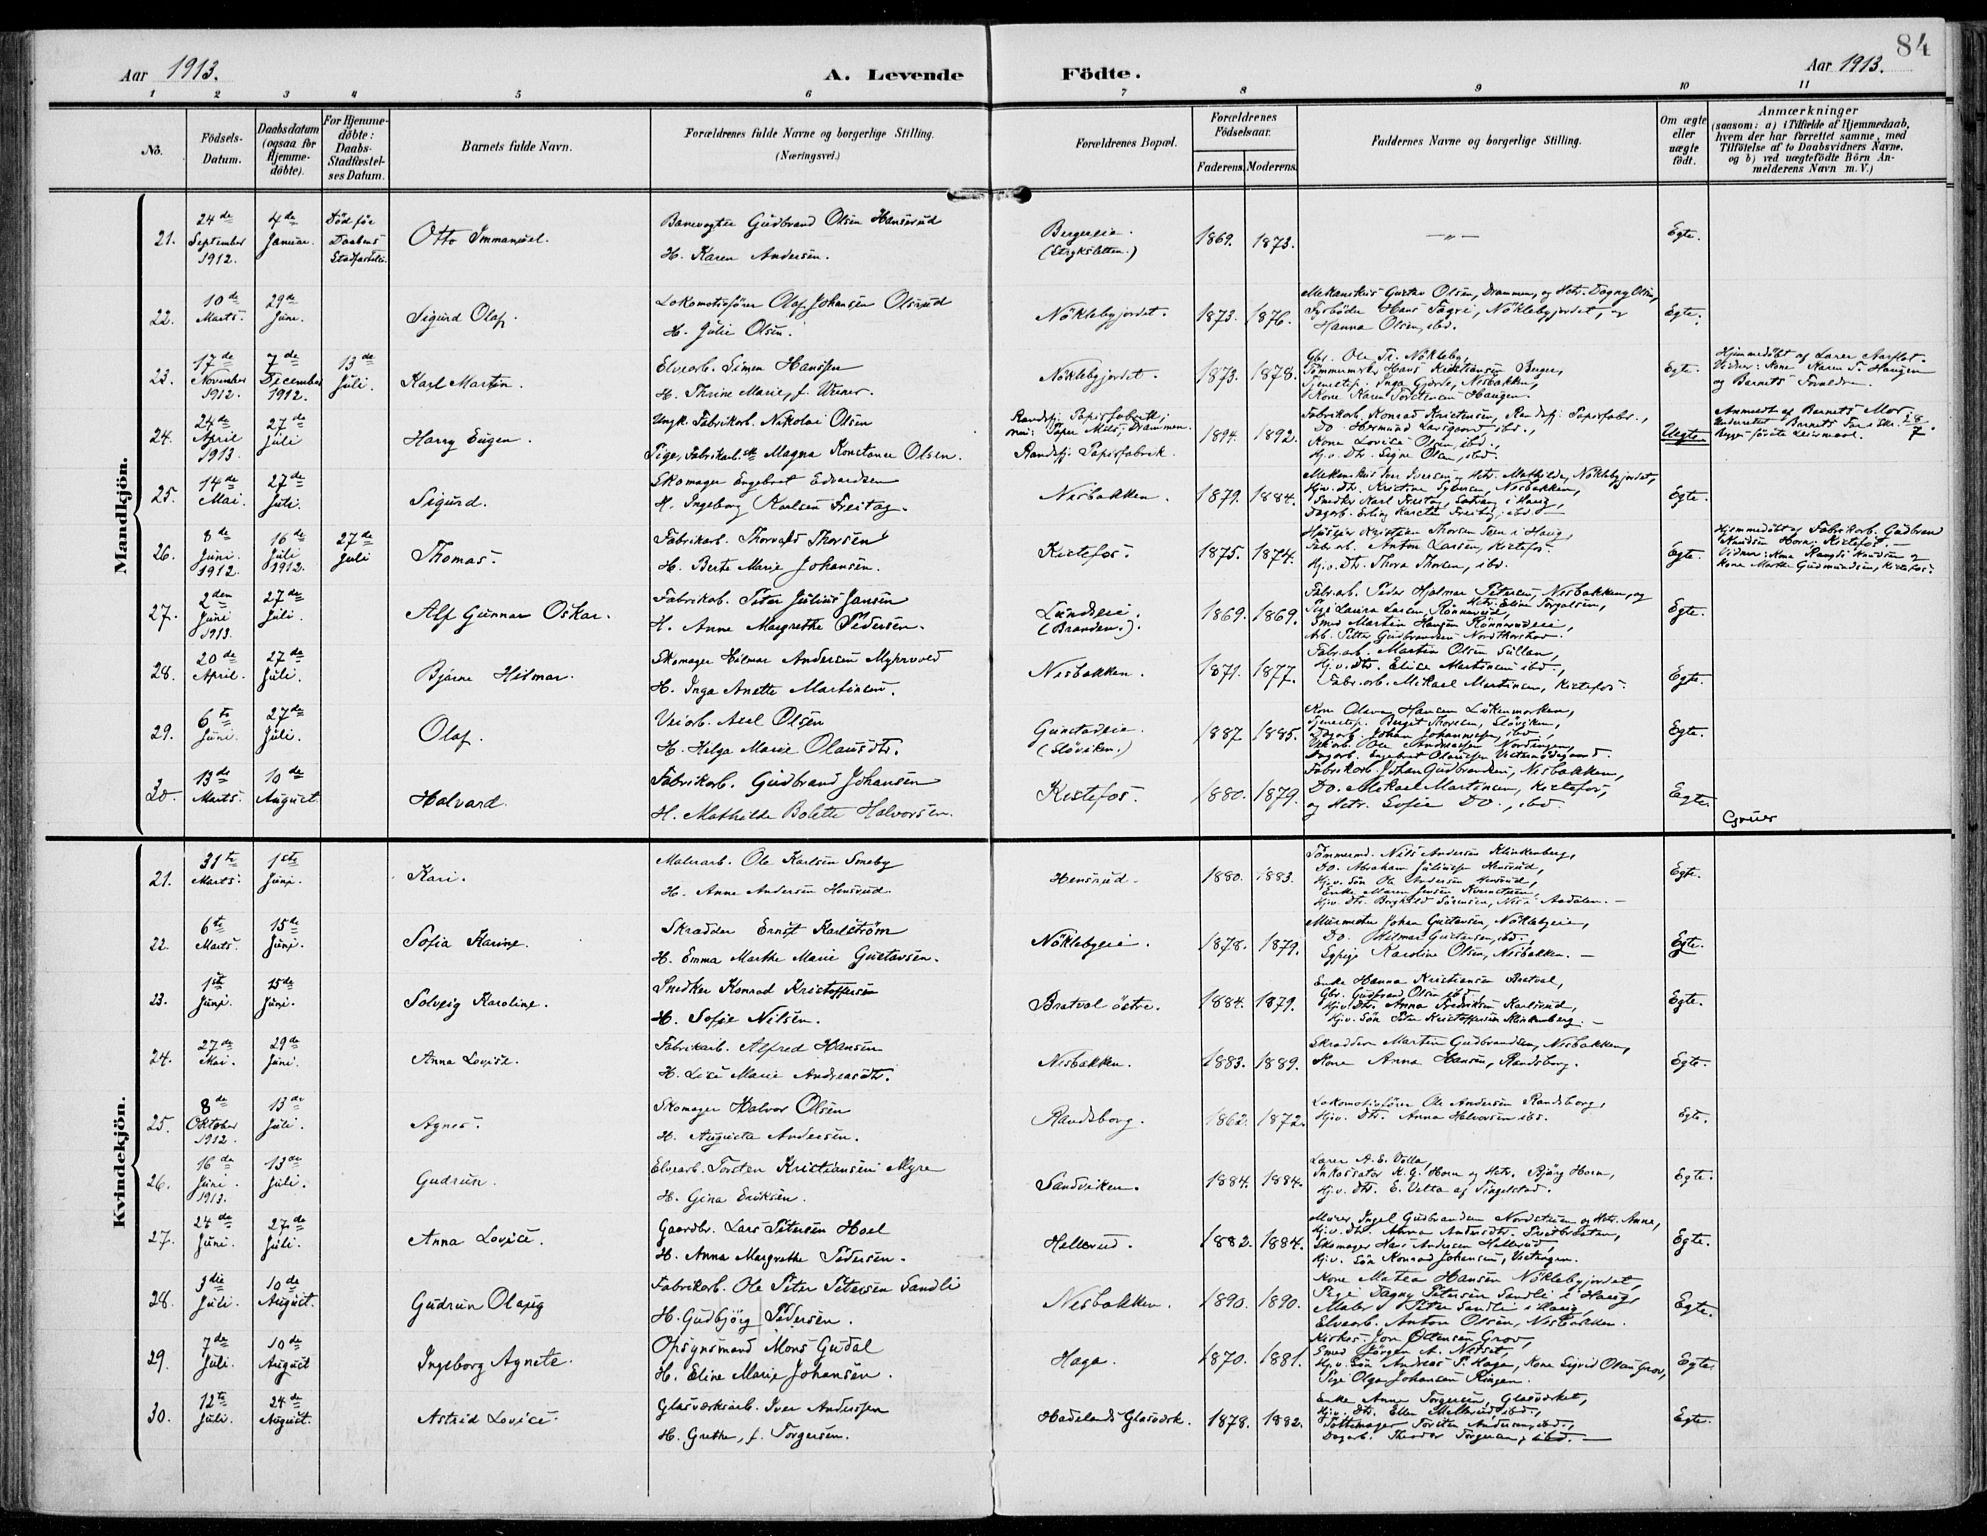 84
Aar 1913.
A. Levende
Födte.
Aar 1913.
1 2 3 4 5 6 7 8 9 10 11
No.
Födsels-Datum.
Daabsdatum (ogsaa for Hjemme-döbte).
For Hjemme-döbte: Daabs-Stadfæstel-ses Datum.
Barnets fulde Navn.
Forældrenes fulde Navne og borgerlige Stilling.
(Næringsvei.)
Forældrenes Bopæl.
Forældrenes Födselsaar.
Faderens. Moderens.
Faddernes Navne og borgerlige Stilling.
Om ægte eller uægte födt.
Anmærkninger
(saasom: a) i Tilfælde af Hjemmedaab,
hvem der har forrettet samme, med
Tilföielse af to Daabsvidners Navne,
og b) ved uægtefödte Börn An-
melderens Navn m. V.)
Mandkjön.
21. 24de September 1912. 4de Januar. Död før Daabens Stadfæstelse
Otto Immanuel.
Banevogter Gudbrand Olsen Hanserud
H. Karen Andersen.
Bergereie.
1869. 1873. — „ — Egte.
22. 10de Marts. 29de Juni.
Sigurd Olaf.
Lokomotivfører Olaf Johansen Olsrud
H. Julie Olsen.
Nöklebyjordet.
1873. 1876.
Mekanikus Gustav Olsen, Drammen, og Hstr. Dagny Olsen,
Fyrbøder Hans Fagri, Nöklebyjordet, og
Hanna Olsen, ibd.
Egte.
23. 17de November 1912. 7de December 1912. 13de Juli.
Karl Martin.
Elvearb. Simen Hanssen
H. Thrine Marie, f.
Nöklebyjordet.
1873. 1878.
Gbr. Ole Tr. Nökleby,
Tømmermrk. Hans Kristiansen Berger,
Tjenestep. Inga Gjerde, Nesbakken,
Kone Karen Torstensen Haugen.
Egte.
Hjemmedøbt af Lærer Aarflot.
Vidner: Kone Karen T. Haugen
og Barnets Forældre.
24. 24de April 1913. 27de Juli
Harry Eugen.
Ungk. Fabrikarb. Nikolai Olsen
Pige, Fabrikarb.ske Magna Konstance Olsen.
Randsfj. Papirfabrik,
Randsfj. Papirfabrik.
1894. 1892.
Fabrikarb. Konrad Kristensen, Randsfj. Papirfabr.,
Do. Hermund Larsgaard ibd.,
Kone Lovise Olsen, ibd.,
Hjv. Dtr. Signe Olsen, ibd.
Uegte
Anmeldt af Barnets Mor.
25. 14de Mai. 27de Juli.
Sigurd.
Skomager Engebret Edvardsen
H. Ingeborg Karlsen Freitag.
Nesbakken.
1879. 1884.
Mekanikus Iver Iversen og Hstr. Mathilde, Nöklebyjordet,
Hjv. Dtr. Kristine Syversen, Nesbakken,
Egte.
26. 8de Juni. 1912. 16de Juli 1912. 27de Juli
Thomas.
Fabrikarb. Thorvald Thorsen
H. Berte Marie Johansen.
Kistefos.
1875. 1874.
Fabr.arb. Anton Larsen, Kistefos.
Hjv. Dtr. Thora Thorsen, ibd.
Egte.
Hjemmedøbt af Fabrikarb. Gudbran
Knudsen Horn, Kistefos. —
Vidner: Kone Randi Knudsen og
Kone Marthe Gudmundsen, Kistefos.
27. 2den Juni 1913. 27de Juli.
Alf Gunnar Oskar.
Fabrikarb. Peter Julius Jansen
H. Anne Margrethe Pedersen.
Lundseie.
(Branden.).
1869. 1869.
Fabr.arb. Peder Hjalmar Petersen, Nesbakken, og
Hstr. Eline Torgalsen,
Pige Laura Larsen, Rönnerud,
Smed Martin Hansen Rönnerudeie,
Egte.
28. 20de April. 27de Juli.
Bjarne Hilmar.
Skomager Hilmar Andersen Myhrvold
H. Inga Anette Martinsen.
Nesbakken.
1871. 1877.
Fabr.arb. Martin Olsen
Hjv. Dtr. Elise Martinsen ibd.,
Fabr.arb. Mikael Martinsen, Kistefos.
Egte.
29. 6te Juni. 27de Juli.
Olaf.
Veiarb. Axel Olsen
H. Helga Marie Olausdtr.
Gunstadeie.
(Slöviken.)
1887. 1885.
Kone Olava Hansen Lökenmarken,
Tjenestep. Bergit Thorsen, Slöviken,
Dagarb. Johan Johannesen, ibd.,
Egte.
30. 13de Marts. 10de August
Halvard.
Fabrikarb. Gudbrand Johansen
H. Mathilde Bolette Halvorsen.
Kistefos.
1880. 1879.
Fabrikarb. Johan Gudbrandsen, Nesbakken,
Do. Mikael Martinsen, Kistefos,
og Hstr. Sofie Do., ibd.
Egte.
Kvindekjön.
21. 31te Marts. 1ste Juni.
Kari.
Malerarb. Ole Karlsen Smeby
H. Anne Andersen Hensrud.
Hensrud.
1880. 1883.
Tømmermd. Nils Andersen Klinkenberg,
Do. Abraham Juliussen Hensrud,
Hjv. Søn Ole Andersen Hensrud,
Egte.
22. 6te Marts. 15de Juni.
Sofia Karine.
Skrædder Ernst Karlström
H. Emma Marthe Marie Gustavsen.
Nöklebyeie.
1878. 1879.
Murmester Johan Gustavsen, Nöklebyeie,
Do. Hilmar Gustavsen, ibd.,
Sypige Karoline Olsen, Nesbakken. —
Egte.
23. 1ste Juni. 15de Juni.
Solveig Karoline.
Snedker Konrad Kristoffersen
H. Sofie Nilsen.
Bratval östre.
1884. 1879.
Enke Hanna Kristiansen Bratval,
Gbr. Gudbrand Olsen ibd.,
Hjv. Dtr. Anna Fredriksen Karlsrud,
Hjv. Søn Peter Kristoffersen Klinkenberg. —
Egte.
24. 27de Mai. 29de Juni.
Anna Lovise.
Fabrikarb. Alfred Hansen
H. Lise Marie Andreasdtr.
Nesbakken.
1883. 1889.
Skrædder Martin Gudbrandsen, Nesbakken,
Kone Anna Hansen, Randsborg.
Egte.
25. 8de Oktober 1912. 13de Juli.
Agnes.
Skomager Halvor Olsen
H. Augusta Andersen.
Randsborg.
1862. 1872.
Lokomotivfører Ole Andersen Randsborg,
Hjv. Dtr. Anna Halvorsen ibd.
Egte.
26. 16de Juni. 1913. 13de Juli.
Gudrun.
Elvearb. Torsten Kristiansen Myre
H. Gina Eriksen.
Sandviken.
1884. 1884.
Lærer A. E. Vølla,
Inkassator K. G. Horn og Hstr. Bjørg Horn,
Hjv. Dtr. E. Vølla af Tingelstad.
Egte.
27. 24de Juni. 27de Juli.
Anna Lovise.
Gaardbr. Lars Petersen Hoel
H. Anna Margrethe Pedersen.
Hallerud.
1882. 1884.
Skomager Hans Andresen Hallerud,
Hjv. Søn Konrad Johansen,
Egte.
28. 3die Juli. 10de August.
Gudrun Olaug
Fabrikarb. Ole Peter Petersen Sandli
H. Gudbjörg Pedersen.
Nesbakken.
1890. 1890.
Kone Mathea Hansen Nöklebyjordet,
Pige Dagny Petersen Sandli i Haug,
Maler Peter Sandli i Haug,
Elvearb. Anton Olsen, Nesbakken.
Egte.
29. 7de Juli. 10de August
Ingeborg Agnete.
Opsynsmand Mons Gudal
H. Eline Marie Johansen.
Haga.
1870. 1881.
Kirkes. Jon Ottensen Grov,
Smed Jörgen A. Netset,
Hjv. Søn Andreas P. Haga, Kone Sigrid Olsen Grov,
Pige Olga Johansen Ringen.
Egte.
30. 12te Juli. 24de August.
Astrid Lovise.
Glasværksarb. Iver Anderssen
H. Grethe, f. Torgersen.
Hadelands Glasværk.
1878. 1882.
Enke Anne Torgersen, Glasværket,
Hjv. Dtr. Ellen Mellerud, ibd.,
Pottemager Torsten Andersen, ibd.,
Dagarb. Theodor Torgersen, ibd. —
Egte.